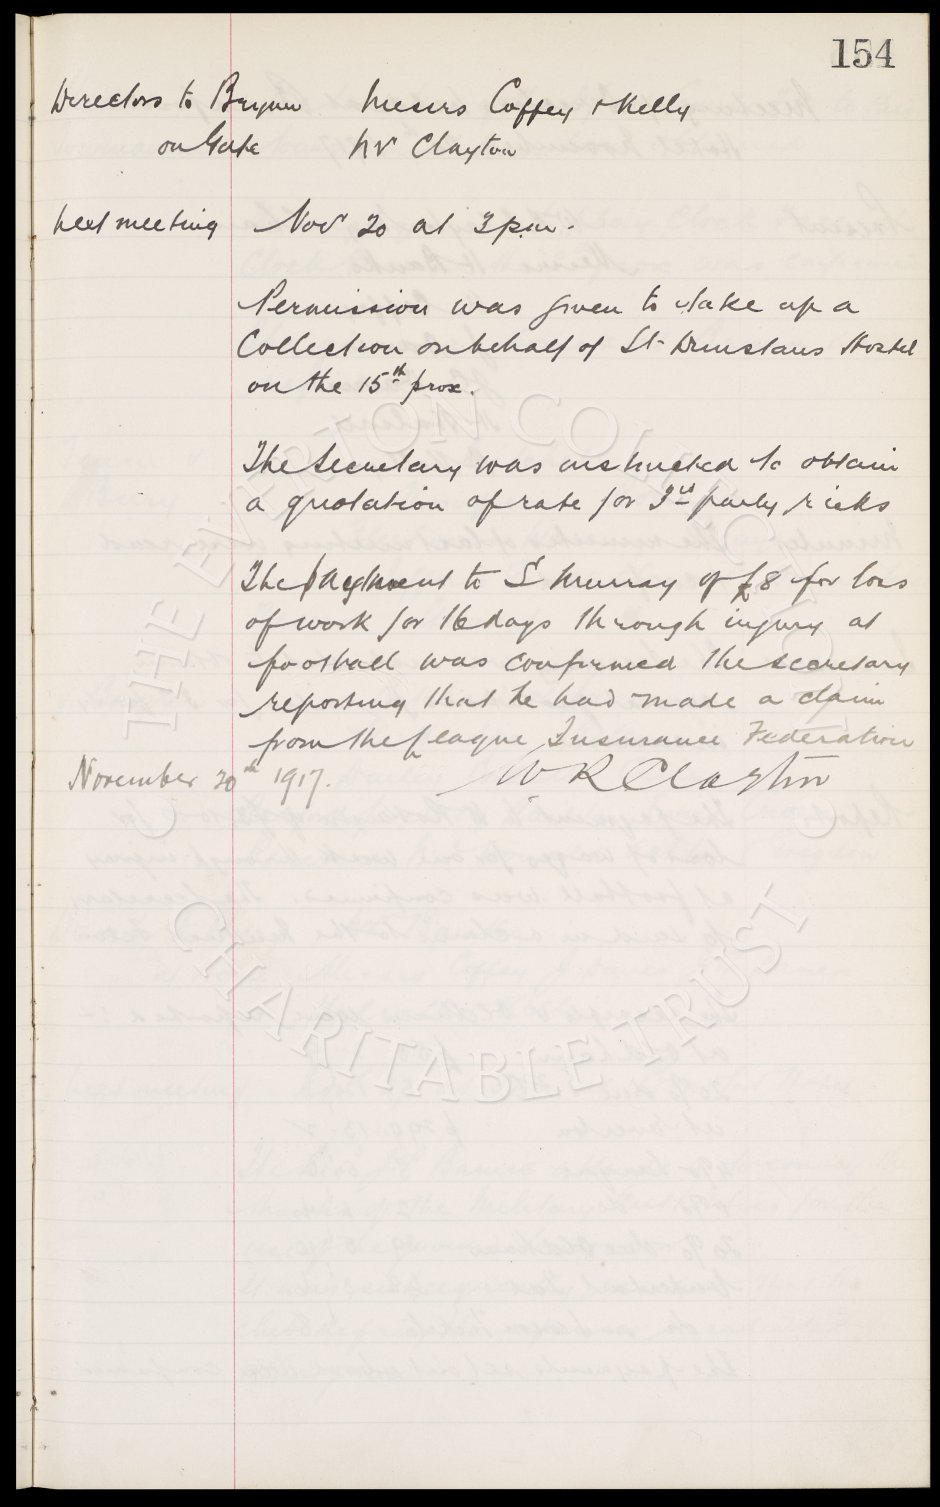 154
Directors to Burnley Messrs Coffey & Kelly
on Gate Mr Clayton
Next meeting Nov 20 at 3 p.m.
Permission was given to take up a
Collection on behalf of St. Dunstans Hostel
on the 15th prox.
The Secretary was instructed to obtain
a quotation of rate for 3rd party risks
The payment to S Murray of £8 for loss
of work for 16 days through injury at
football was confirmed the secretary
reporting that he had made a claim
from the League Insurance Federation
November 20th 1917. W R Clayton
THE EVERTON COLLECTION
CHARITABLE TRUST